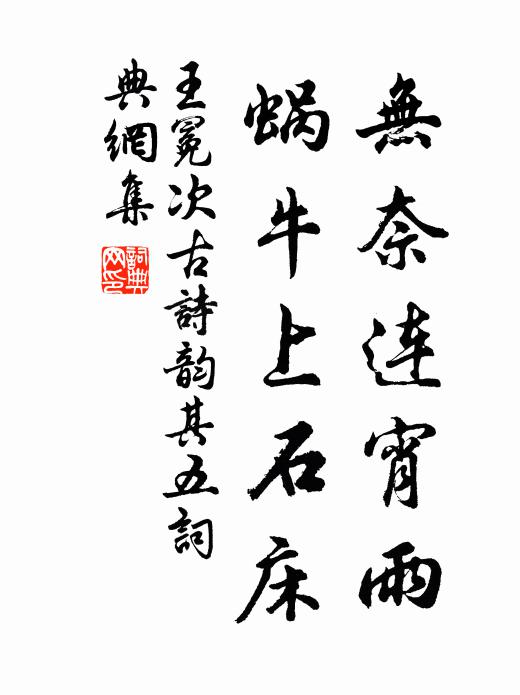 無奈連宵雨
蝸牛上石床
王冕次古詩韵其五詞
典網集
詞典
网印